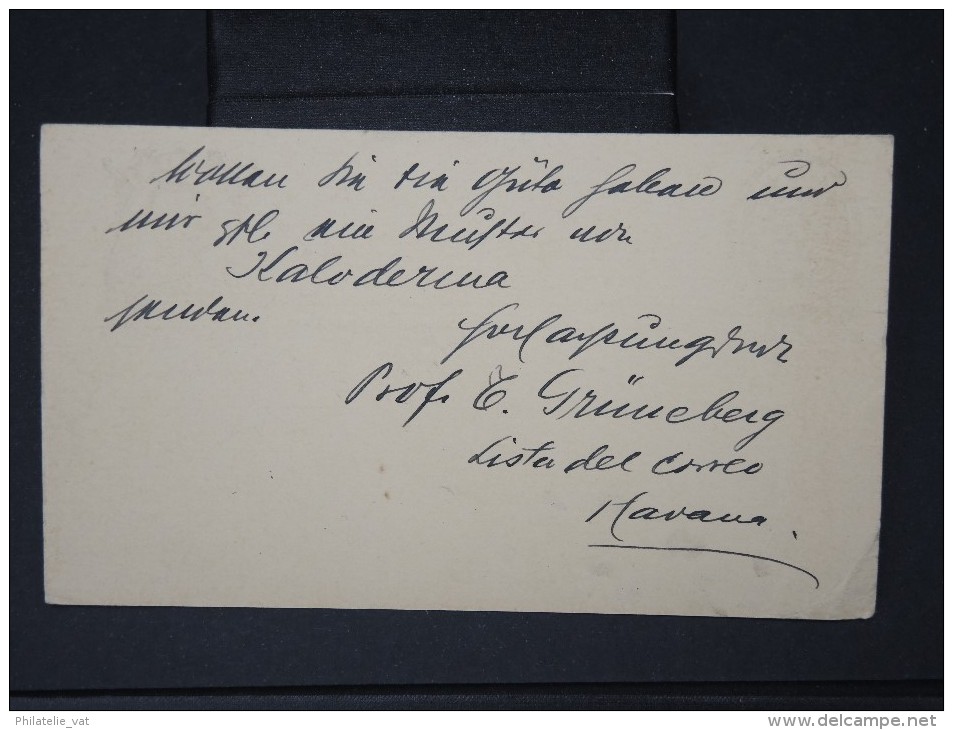 Wollen Sie die Güte haben und
mir gfl. ein Muster von
Kaloderma
senden.
Hochachtungsvoll
Prof. E. Grüneberg
Lista del Correo
Havana.
Philatelie_vat
www.delcampe.net